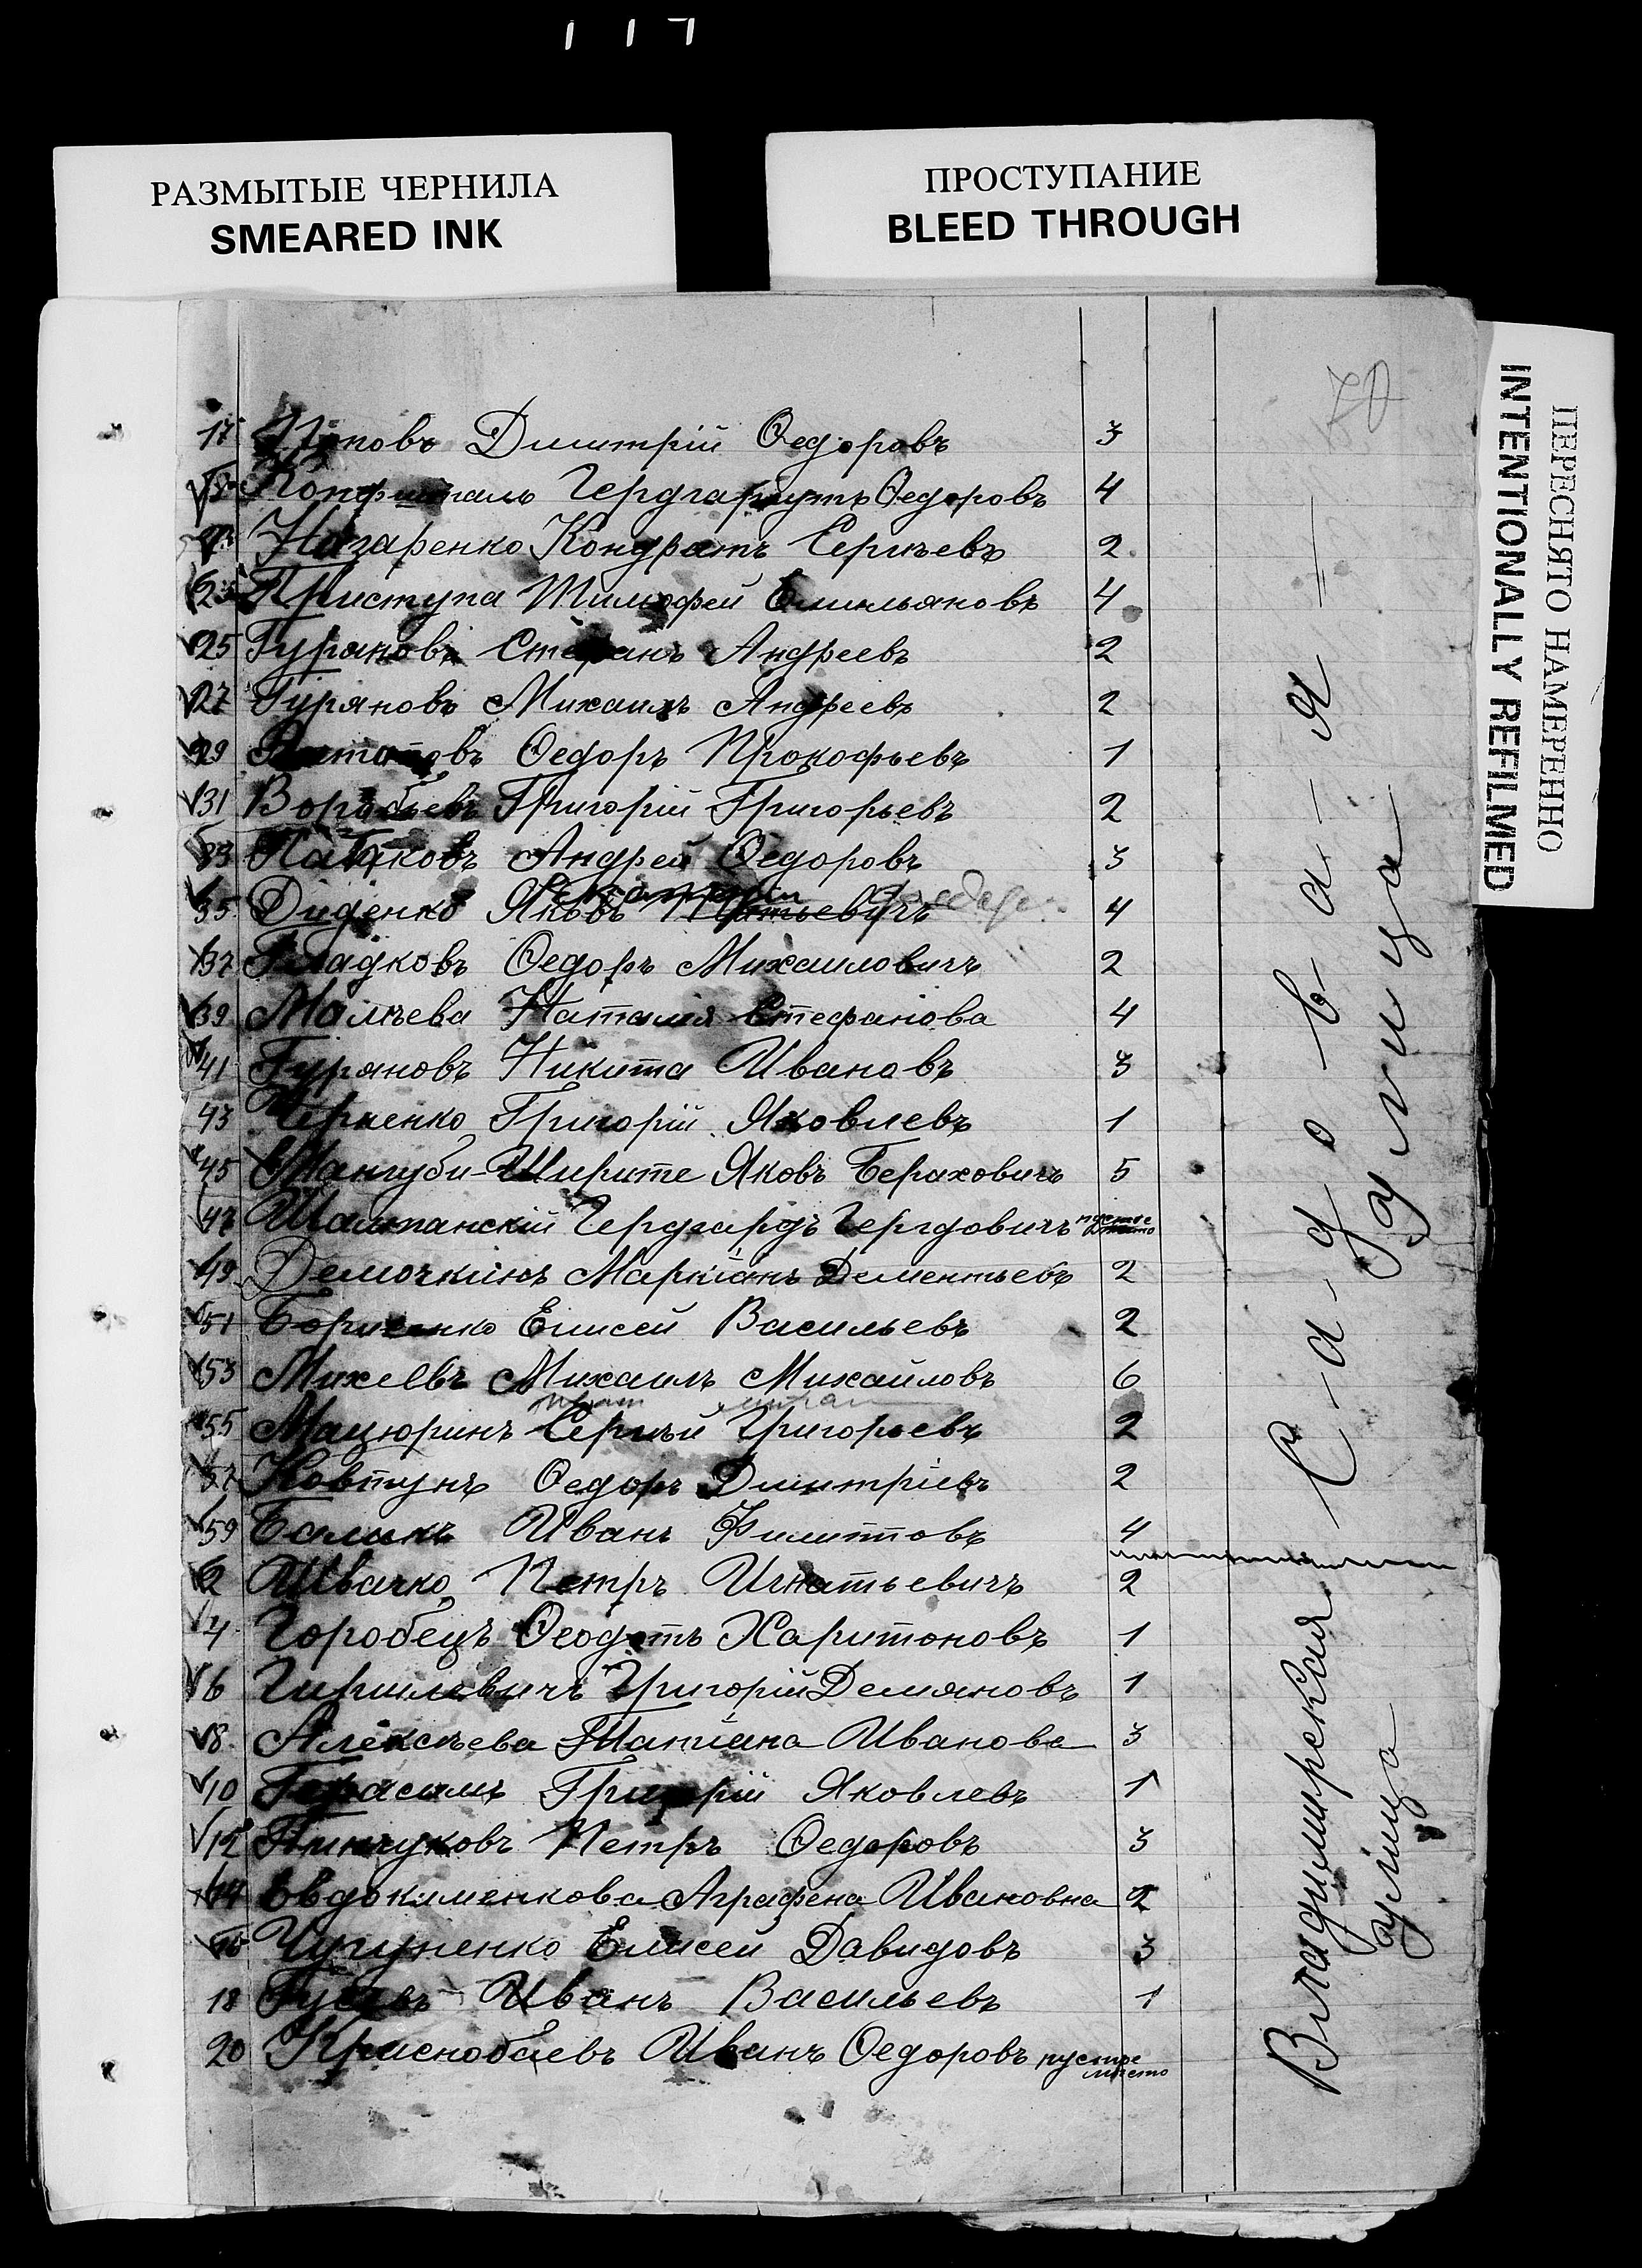 РАЗМЫТЫЕ ЧЕРНИЛА
SMEARED INK
ПРОСТУПАНИЕ
BLEED THROUGH
ПЕРЕСНЯТО НАМЕРЕННО
INTENTIONALLY REFILMED
70
17 Поповъ Димитрій Ѳедоровъ 3
Ѳедоровъ 4
Назаренко Кондратъ Сергѣевъ 2
23 Приступа Тимофей Емильяновъ 4
25 Гуряновъ Степанъ Андреевъ 2
27 Гуряновъ Михаилъ Андреевъ 2
29 Ѳедоръ Прокофьевъ 1
31 Воробьевъ Григорій Григорьевъ 2
33 Андрей Ѳедоровъ 3
35 Диденко Яковъ 4
37 Гладковъ Ѳедоръ Михаиловичъ 2
39 Наталія Стефанова 4
41 Гуряновъ Никита Ивановъ 3
43 Черненко Григорій Яковлевъ 1
45 Мангуби-Ширите Яковъ Бераховичъ 5
47 Шампанскій Гергардъ Гергдовичъ пустое
49 Демочкинъ Маркіанъ Дементьевъ 2
51 Борисенко Елисей Васильевъ 2
53 Михеевъ Михаилъ Михайловъ 6
55 Мацюринъ Сергѣй Григорьевъ 2
57 Ковтунъ Ѳедоръ Димитріевъ 2
59 Балыкъ Иванъ Филипповъ 4
2 Швачко Петръ Игнатьевичъ 2
4 Горобецъ Ѳеодотъ Харитоновъ 1
6 Гиршлевичъ Григорій Демяновъ 1
8 Алексѣева Татіана Иванова 3
10 Герасимъ Григорій Яковлевъ 1
12 Пинчуковъ Петръ Ѳедоровъ 3
14 Евдокименкова Аграфена Ивановна 2
16 Чугуненко Елисей Давидовъ 3
18 Гусевъ Иванъ Васильевъ 1
20 Краснобаевъ Иванъ Ѳедоровъ пустое
мѣсто
С-а-д-о-в-а-я
улица
Владимирская
улица